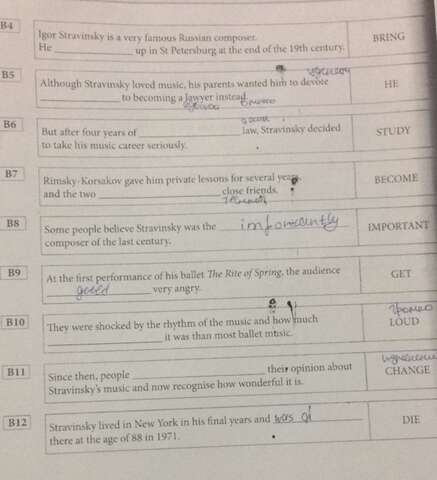 B4
Igor Stravinsky is a very famous Russian composer.
He ____________ up in St Petersburg at the end of the 19th century.
BRING
B5
Although Stravinsky loved music, his parents wanted him to devote
____________ to becoming a lawyer instead.
HE
B6
But after four years of ____________ law, Stravinsky decided
to take his music career seriously.
STUDY
B7
Rimsky-Korsakov gave him private lessons for several years,
and the two ____________ close friends.
BECOME
B8
Some people believe Stravinsky was the ____________
composer of the last century.
IMPORTANT
B9
At the first performance of his ballet The Rite of Spring, the audience
____________ very angry.
GET
B10
They were shocked by the rhythm of the music and how much
____________ it was than most ballet music.
громко
LOUD
B11
Since then, people ____________ their opinion about
Stravinsky's music and now recognise how wonderful it is.
CHANGE
B12
Stravinsky lived in New York in his final years and ____________
there at the age of 88 in 1971.
DIE